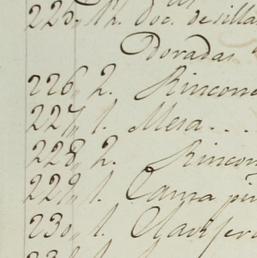 225, 12. doc. de silla
Doradas
226, 2. Rincone
227, 1. Mesa...
228, 2. Rincon
229, 1. Cama
230, 1. Clavi